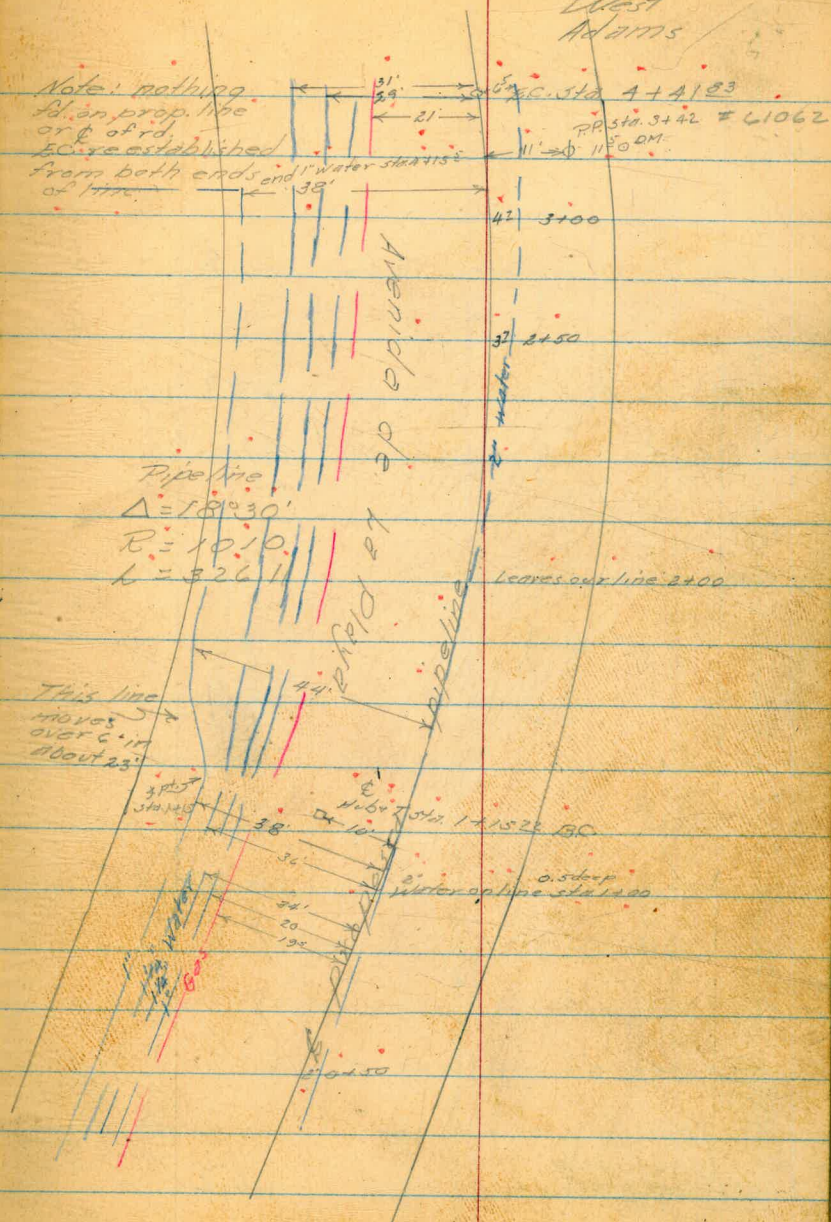 West
Adams
Note: nothing
fd. on prop. line
or ℄ of rd.
E.C. re established
from both ends
of line.
31'
29'
21'
6⁵
E.C. Sta 4+41⁸³
P.P. Sta. 3+42 #61062
11'
end 1" Water
38'
4² 3+00
3² 2+50
2" Water
Avenida de La Playa
Pipeline
Δ = 18°30'
R = 1010
L = 326.11
Leaves our line 2+00
pipeline
44'
This line
moves
over 6' in
about 23'
℄
Hub & T Sta. 1+15²² BC
10'
38'
36'
2" 0.5 deep
Water on line sta 1+00
24'
20
19⁵
1"
Water
Gas
2" 0+50